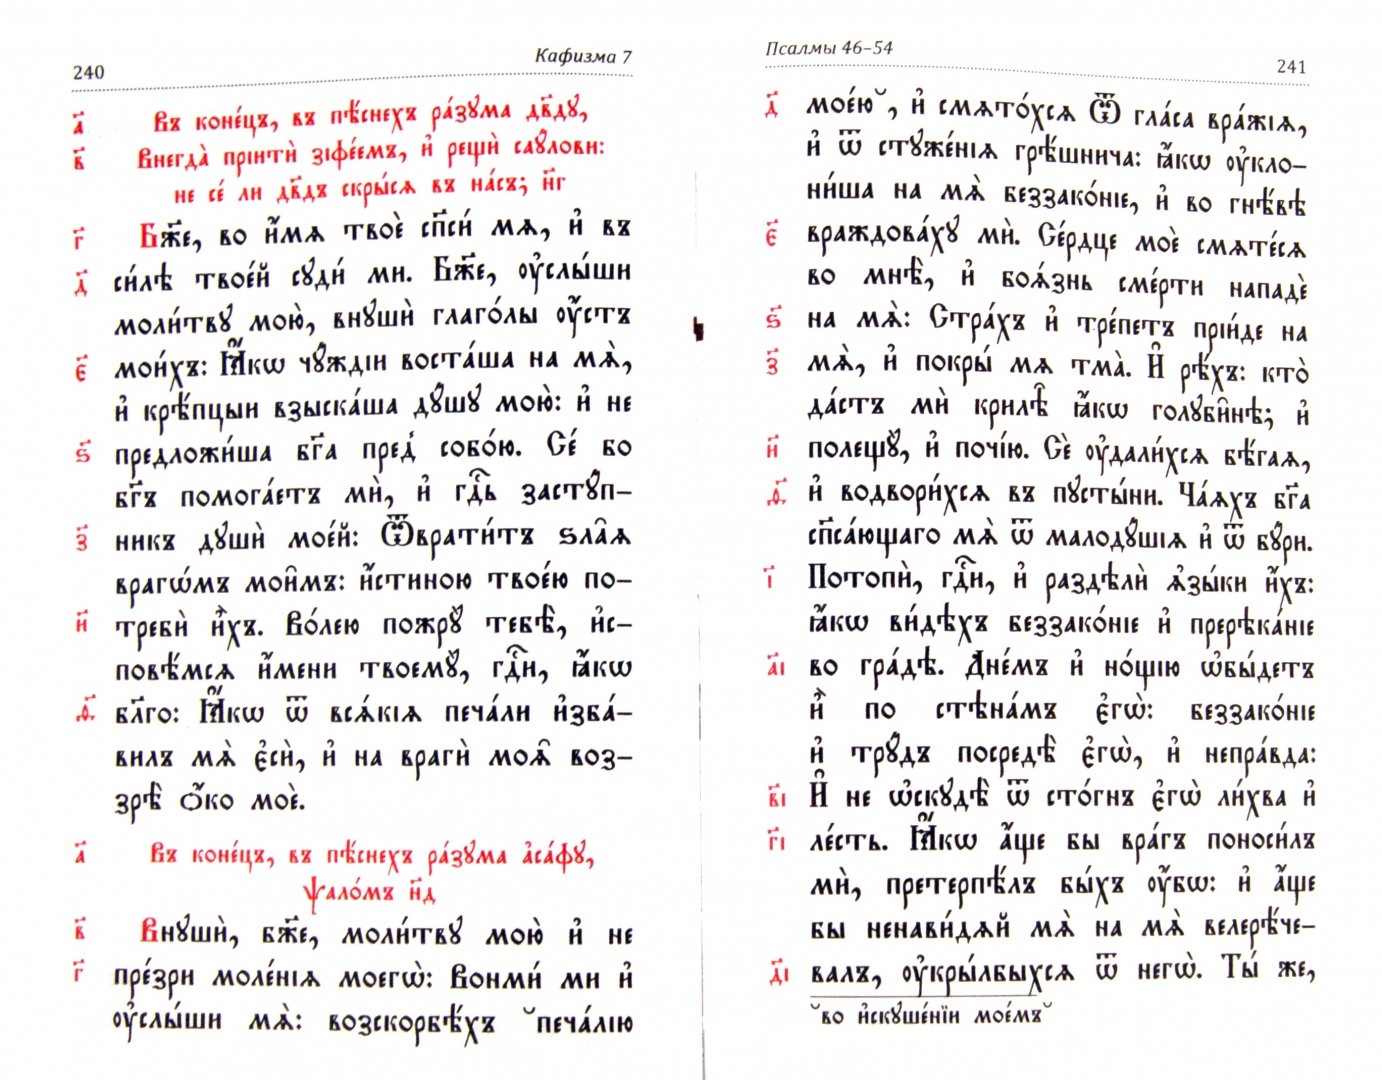 240
Кафизма 7
а҃ Въ коне́цъ, въ пѣ́снехъ ра́зꙋма дв҃дꙋ,
в҃ Внегда̀ прїитѝ зїфе́емъ, и҆ рещѝ саꙋлови:
не се́ ли дв҃дъ скры́сѧ въ на́съ; н҃г
г҃ Бж҃е, во и҆́мѧ твоѐ сп҃си́ мѧ, и҆ въ
д҃ си́лѣ твое́й сꙋди́ ми. Бж҃е, ᲂу҆слы́ши
моли́твꙋ мою̀, внꙋшѝ глаго́лы ᲂу҆́стъ
є҃ мои́хъ: Ꙗ҆́кѡ чꙋ́ждїи воста́ша на мѧ̀,
и҆ крѣ́пцыи взыска́ша дꙋ́шꙋ мою̀: и҆ не
ѕ҃ предложи́ша бг҃а пред̾ собо́ю. Се́ бо
бг҃ъ помога́етъ мѝ, и҆ гдⷭ҇ь застꙋ́п-
з҃ никъ дꙋшѝ мое́й: Ѿврати́тъ ѕла̑ѧ
врагѡ́мъ мои̑мъ: и҆́стиною твое́ю по-
и҃ требѝ и҆̀хъ. Во́лею пожрꙋ̀ тебѣ̀, и҆с-
повѣ́мсѧ и҆́мени твоемꙋ̀, гдⷭ҇и, ꙗ҆́кѡ
ѳ҃ бл҃го: Ꙗ҆́кѡ ѿ всѧ́кїѧ печа́ли и҆зба́-
вилъ мѧ̀ є҆сѝ, и҆ на врагѝ моѧ̑ воз-
зрѣ̀ ѻ҆́ко моѐ.
а҃ Въ коне́цъ, въ пѣ́снехъ ра́зꙋма а҆са́фꙋ,
ѱало́мъ н҃д
в҃ Внꙋшѝ, бж҃е, моли́твꙋ мою̀ и҆ не
г҃ пре́зри моле́нїѧ моегѡ̀: Вонми́ ми и҆
ᲂу҆слы́ши мѧ̀: возскорбѣ́хъ ˘печа́лїю
Псалмы 46–54
241
д҃ мое́ю˘, и҆ смѧто́хсѧ Ѿ гла́са вра́жїѧ,
и҆ ѿ стꙋже́нїѧ грѣ́шнича: ꙗ҆́кѡ ᲂу҆кло-
ни́ша на мѧ̀ беззако́нїе, и҆ во гнѣ́вѣ
є҃ враждова́хꙋ мѝ. Се́рдце моѐ смѧте́сѧ
во мнѣ̀, и҆ боѧ́знь сме́рти нападѐ
ѕ҃ на мѧ̀: Стра́хъ и҆ тре́петъ прїи́де на
з҃ мѧ̀, и҆ покры́ мѧ тма̀. И҆ рѣ́хъ: кто̀
да́стъ мѝ крилѣ̑ ꙗ҆́кѡ голꙋби̑нѣ; и҆
и҃ полещꙋ̀, и҆ почі́ю. Сѐ ᲂу҆дали́хсѧ бѣ́гаѧ,
ѳ҃ и҆ водвори́хсѧ въ пꙋсты́ни. Ча́ѧхъ бг҃а
сп҃са́ющаго мѧ̀ ѿ малодꙋ́шїѧ и҆ ѿ бꙋ́ри.
і҃ Потопѝ, гдⷭ҇и, и҆ раздѣлѝ ѧ҆зы́ки и҆́хъ:
ꙗ҆́кѡ ви́дѣхъ беззако́нїе и҆ пререка́нїе
а҃і во гра́дѣ. Дне́мъ и҆ но́щїю ѡ҆бы́детъ
и҆̀ по стѣна́мъ є҆гѡ̀: беззако́нїе
и҆ трꙋ́дъ посредѣ̀ є҆гѡ̀, и҆ непра́вда:
в҃і И҆ не ѡ҆скꙋдѣ̀ ѿ сто́гнъ є҆гѡ̀ ли́хва и҆
г҃і ле́сть. Ꙗ҆́кѡ а҆́ще бы вра́гъ поноси́лъ
мѝ, претерпѣ́лъ бы́хъ ᲂу҆́бѡ: и҆ а҆́ще
бы ненави́дѧй мѧ̀ на мѧ̀ велерѣ́че-
д҃і валъ, ᲂу҆кры́лбыхсѧ ѿ негѡ̀. Ты́ же,
˘во и҆скꙋше́нїи мое́мъ˘